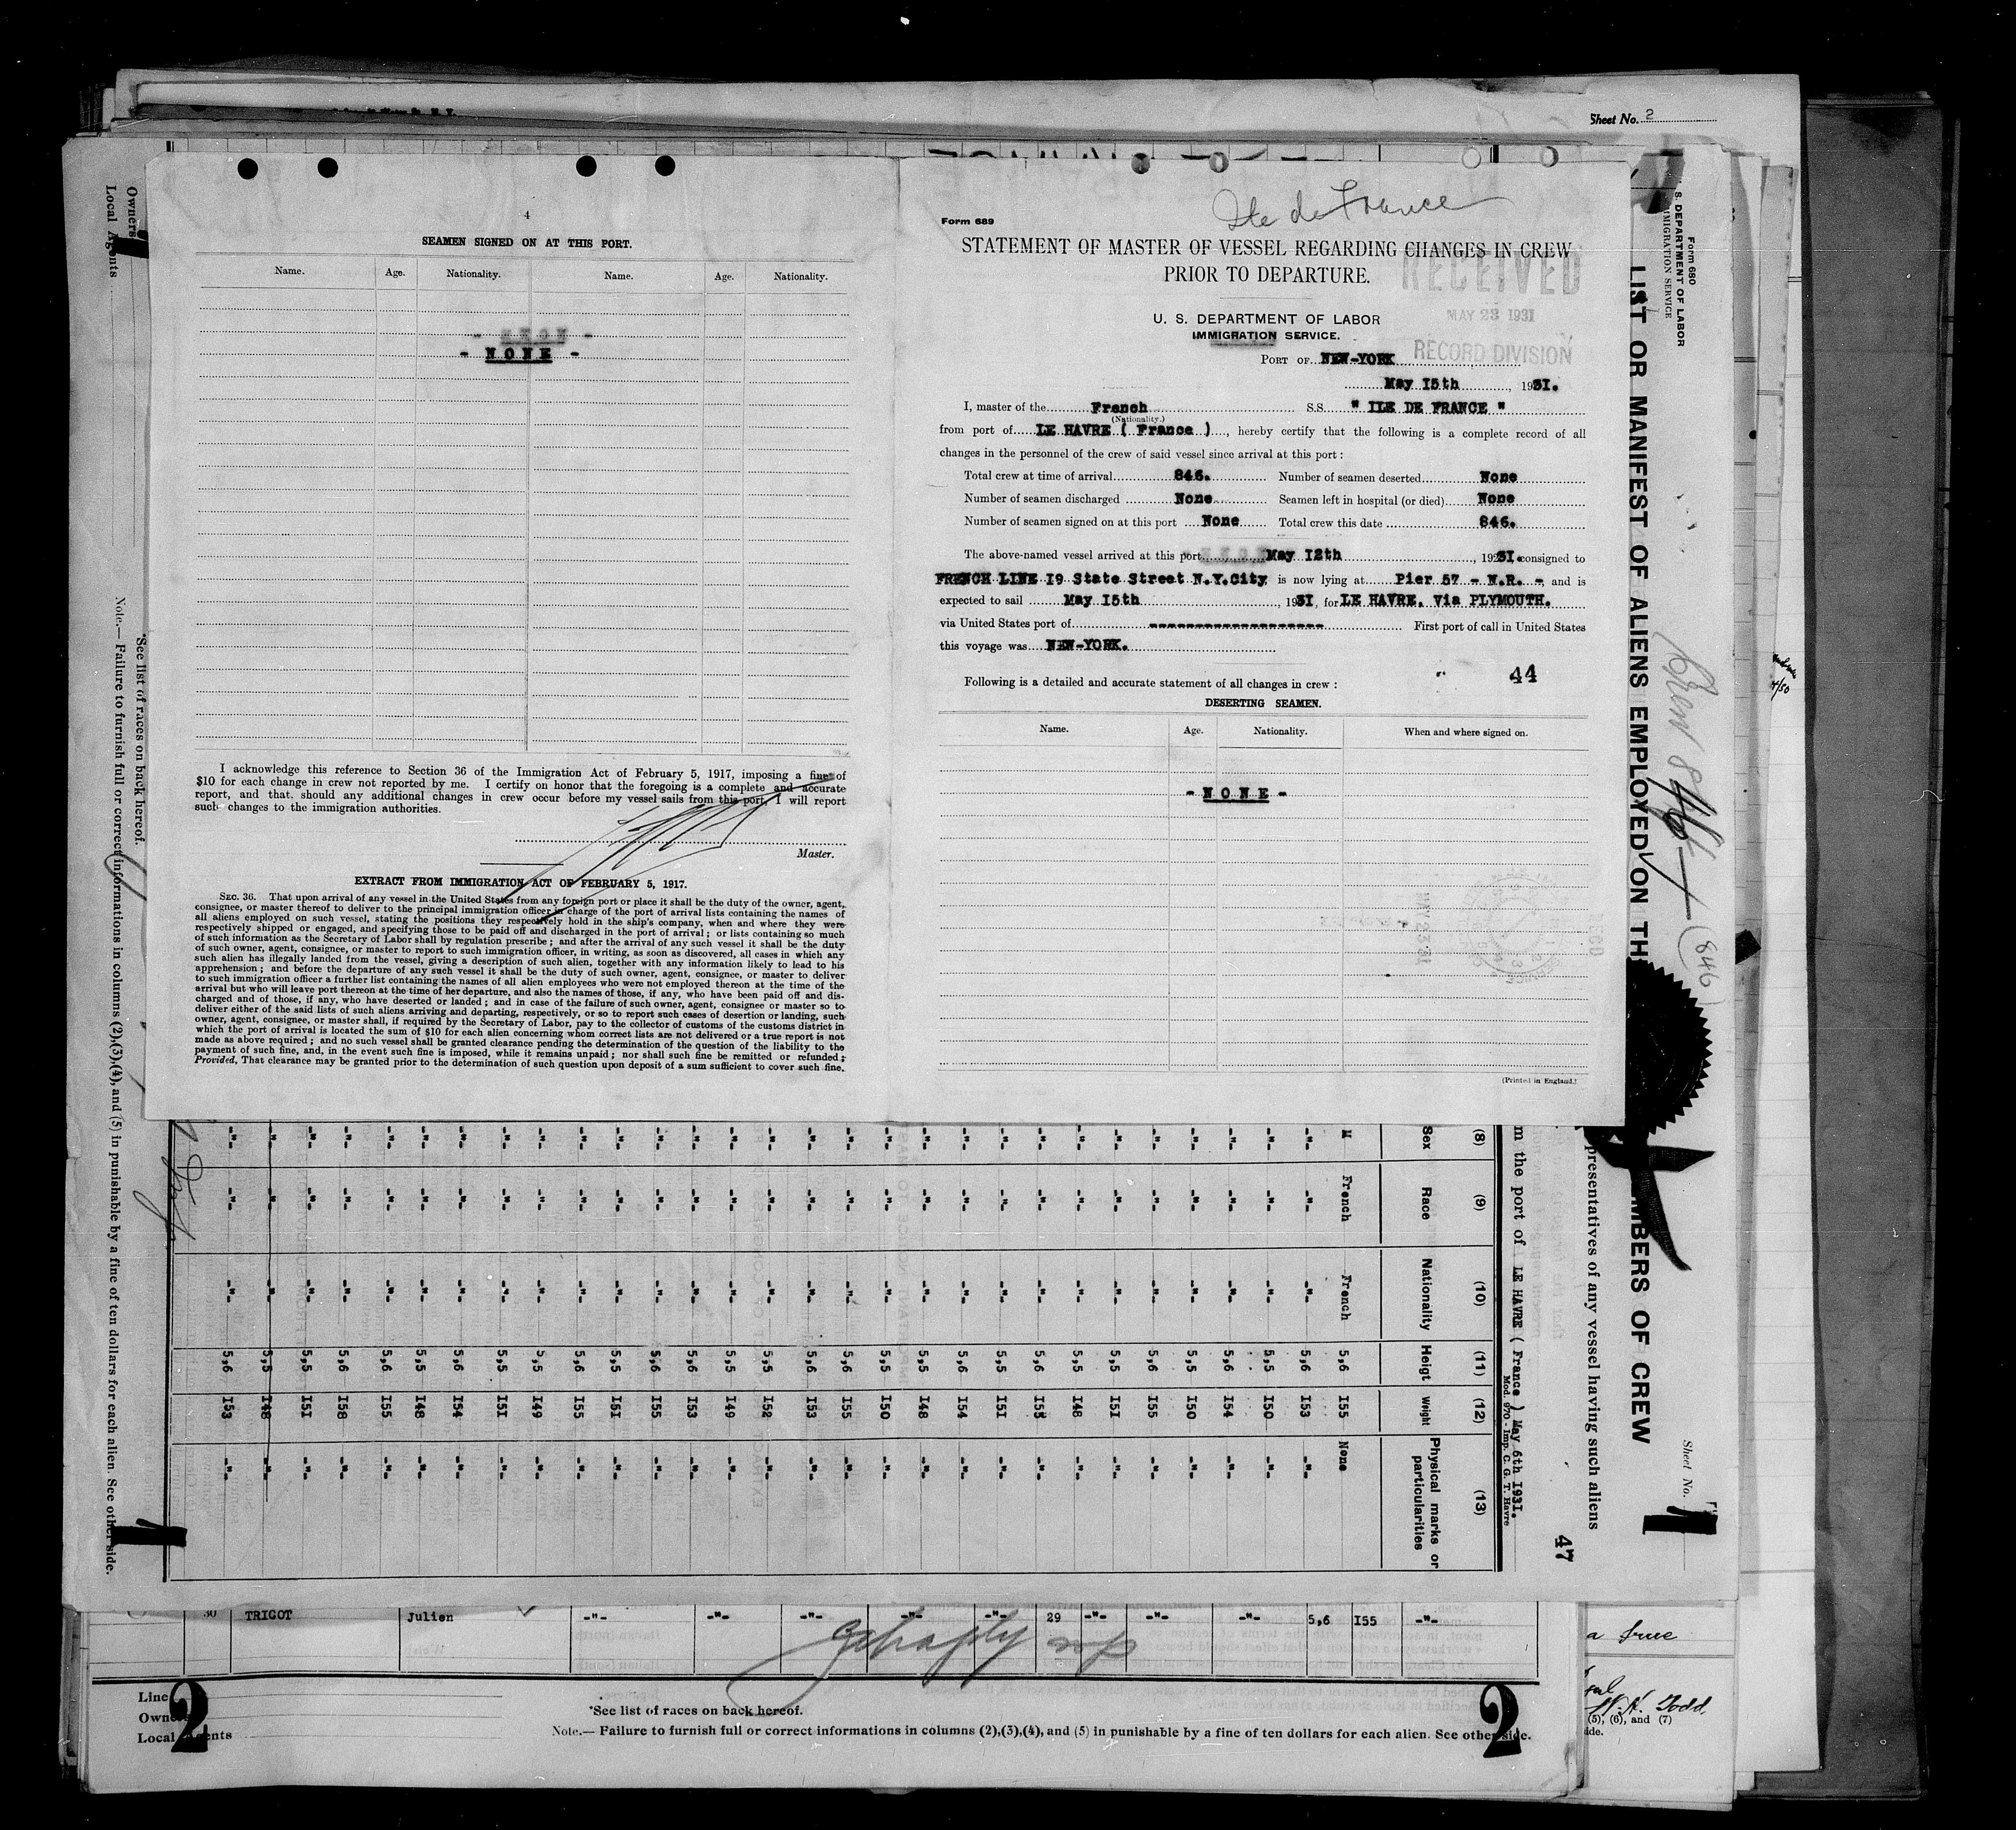 Sheet No. 2
4
SEAMEN SIGNED ON AT THIS PORT.
Name. Age. Nationality. Name. Age. Nationality.
- NONE -
- NONE -
I acknowledge this reference to Section 36 of the Immigration Act of February 5, 1917, imposing a fine of
$10 for each change in crew not reported by me. I certify on honor that the foregoing is a complete and accurate
report, and that should any additional changes in crew occur before my vessel sails from this port, I will report
such changes to the immigration authorities.
Master.
EXTRACT FROM IMMIGRATION ACT OF FEBRUARY 5, 1917.
SEC. 36. That upon arrival of any vessel in the United States from any foreign port or place it shall be the duty of the owner, agent,
consignee, or master thereof to deliver to the principal immigration officer in charge of the port of arrival lists containing the names of
all aliens employed on such vessel, stating the positions they respectively hold in the ship's company, when and where they were
respectively shipped or engaged, and specifying those to be paid off and discharged in the port of arrival; or lists containing so much
of such information as the Secretary of Labor shall by regulation prescribe; and after the arrival of any such vessel it shall be the duty
of such owner, agent, consignee, or master to report to such immigration officer, in writing, as soon as discovered, all cases in which any
such alien has illegally landed from the vessel, giving a description of such alien, together with any information likely to lead to his
apprehension; and before the departure of any such vessel it shall be the duty of such owner, agent, consignee, or master to deliver
to such immigration officer a further list containing the names of all alien employees who were not employed thereon at the time of the
arrival but who will leave port thereon at the time of her departure, and also the names of those, if any, who have been paid off and dis-
charged and of those, if any, who have deserted or landed; and in case of the failure of such owner, agent, consignee or master so to
deliver either of the said lists of such aliens arriving and departing, respectively, or so to report such cases of desertion or landing, such
owner, agent, consignee, or master shall, if required by the Secretary of Labor, pay to the collector of customs of the customs district in
which the port of arrival is located the sum of $10 for each alien concerning whom correct lists are not delivered or a true report is not
made as above required; and no such vessel shall be granted clearance pending the determination of the question of the liability to the
payment of such fine, and, in the event such fine is imposed, while it remains unpaid; nor shall such fine be remitted or refunded;
Provided, That clearance may be granted prior to the determination of such question upon deposit of a sum sufficient to cover such fine.
Ile de France
Form 689
STATEMENT OF MASTER OF VESSEL REGARDING CHANGES IN CREW
PRIOR TO DEPARTURE.
RECEIVED
MAY 23 1931
RECORD DIVISION
U. S. DEPARTMENT OF LABOR
IMMIGRATION SERVICE.
PORT OF NEW-YORK
May 15th, 1931.
I, master of the French S.S. " ILE DE FRANCE "
(Nationality.)
from port of LE HAVRE ( France ), hereby certify that the following is a complete record of all
changes in the personnel of the crew of said vessel since arrival at this port:
Total crew at time of arrival 846. Number of seamen deserted None
Number of seamen discharged None Seamen left in hospital (or died) None
Number of seamen signed on at this port None Total crew this date 846.
The above-named vessel arrived at this port May 12th, 1931. consigned to
FRENCH LINE 19 State Street N.Y.City is now lying at Pier 57 - N.R. -, and is
expected to sail May 15th, 1931, for LE HAVRE. Via PLYMOUTH.
via United States port of ------------------- First port of call in United States
this voyage was NEW-YORK.
44
Following is a detailed and accurate statement of all changes in crew:
DESERTING SEAMEN.
Name. Age. Nationality. When and where signed on.
- NONE -
(Printed in England.)
Form 680
S. DEPARTMENT OF LABOR
IMMIGRATION SERVICE
LIST OR MANIFEST OF ALIENS EMPLOYED ON TH
MBERS OF CREW
Crew 846
(846)
Sheet No.
presentatives of any vessel having such aliens
m the port of LE HAVRE ( France ) May 6th 1931.
Mod. 970 - Imp. C. G. T. Havre
47
(8) Sex M
(9) Race French
(10) Nationality French
(11) Heigt 5,6 5,6 5,5 5,6 5,5 5,6 5,5 5,5 5,6 5,5 5,6 5,5 5,5 5,6 5,6 5,5 5,5 5,6 5,6 5,5 5,6 5,5 5,5 5,6 5,5 5,6 5,6 5,5 5,5 5,6
(12) Weight I55 I53 I50 I54 I50 I55 I5I I48 I55 I5I I54 I48 I50 I55 I53 I52 I49 I53 I55 I5I I55 I49 I5I I54 I48 I55 I58 I5I I48 I53
(13) Physical marks or particularities None
Owners
Local Agents
*See list of races on back hereof.
Note.— Failure to furnish full or correct informations in columns (2),(3),(4), and (5) in punishable by a fine of ten dollars for each alien. See other side.
30 TRIGOT Julien -"- -"- -"- -"- -"- 29 -"- -"- -"- 5,6 I55 -"-
Line
Owners
Local Agents
2
2
*See list of races on back hereof.
Note.— Failure to furnish full or correct informations in columns (2),(3),(4), and (5) in punishable by a fine of ten dollars for each alien. See other side.
a true
W.H. Todd
(5), (6), and (7)
ide.